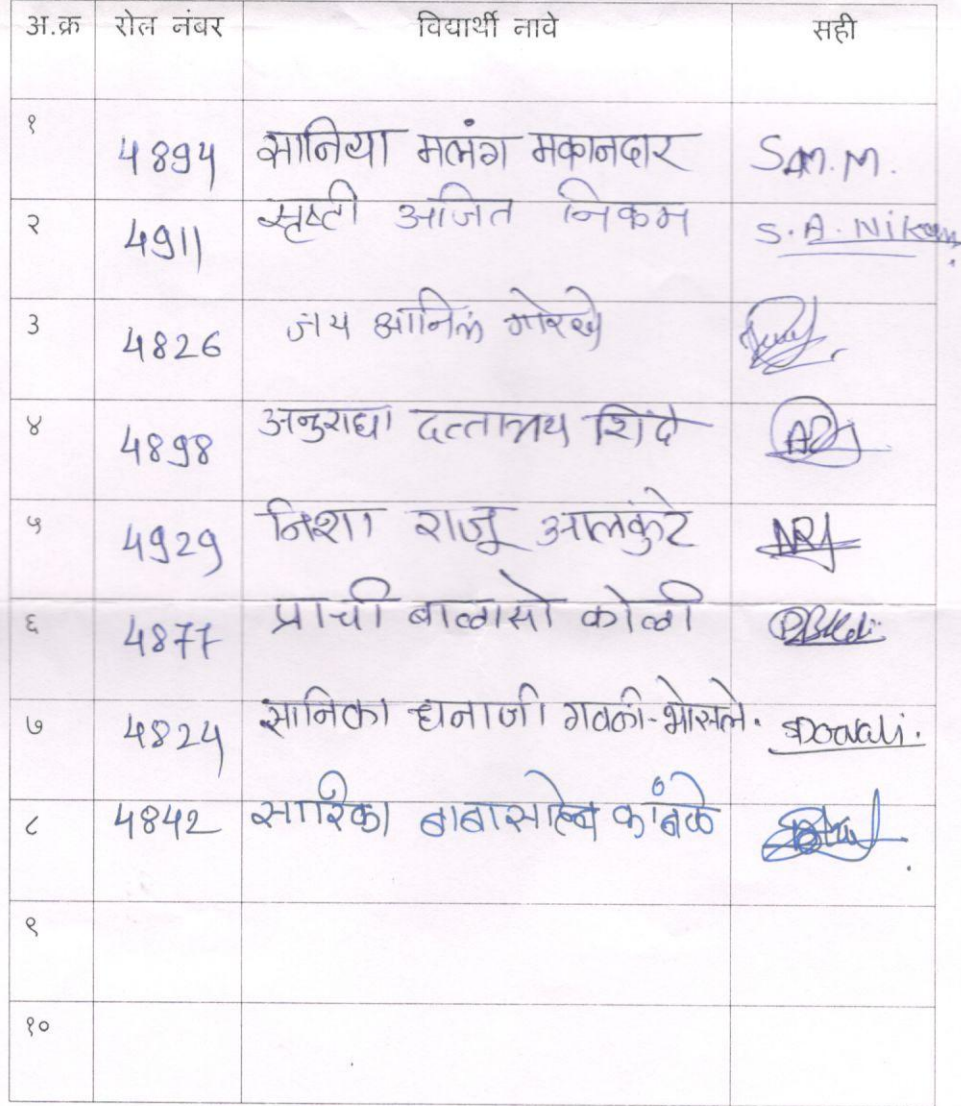 अ.क्र रोल नंबर विद्यार्थी नावे सही
१ 4894 सानिया मलंग मकानदार S.M.M.
२ 4911 सृष्टी अजित निकम S.A. Nikam
3 4826 जय अनिल गोरखे
४ 4898 अनुराधा दत्तात्रय शिंदे
५ 4929 निशा राजू आलकुंटे
६ 4877 प्राची बाळासो कोळी
७ 4824 सानिका धनाजी गवळी-भोसले.
८ 4842 सारिका बाबासाहेब कांबळे
९
१०